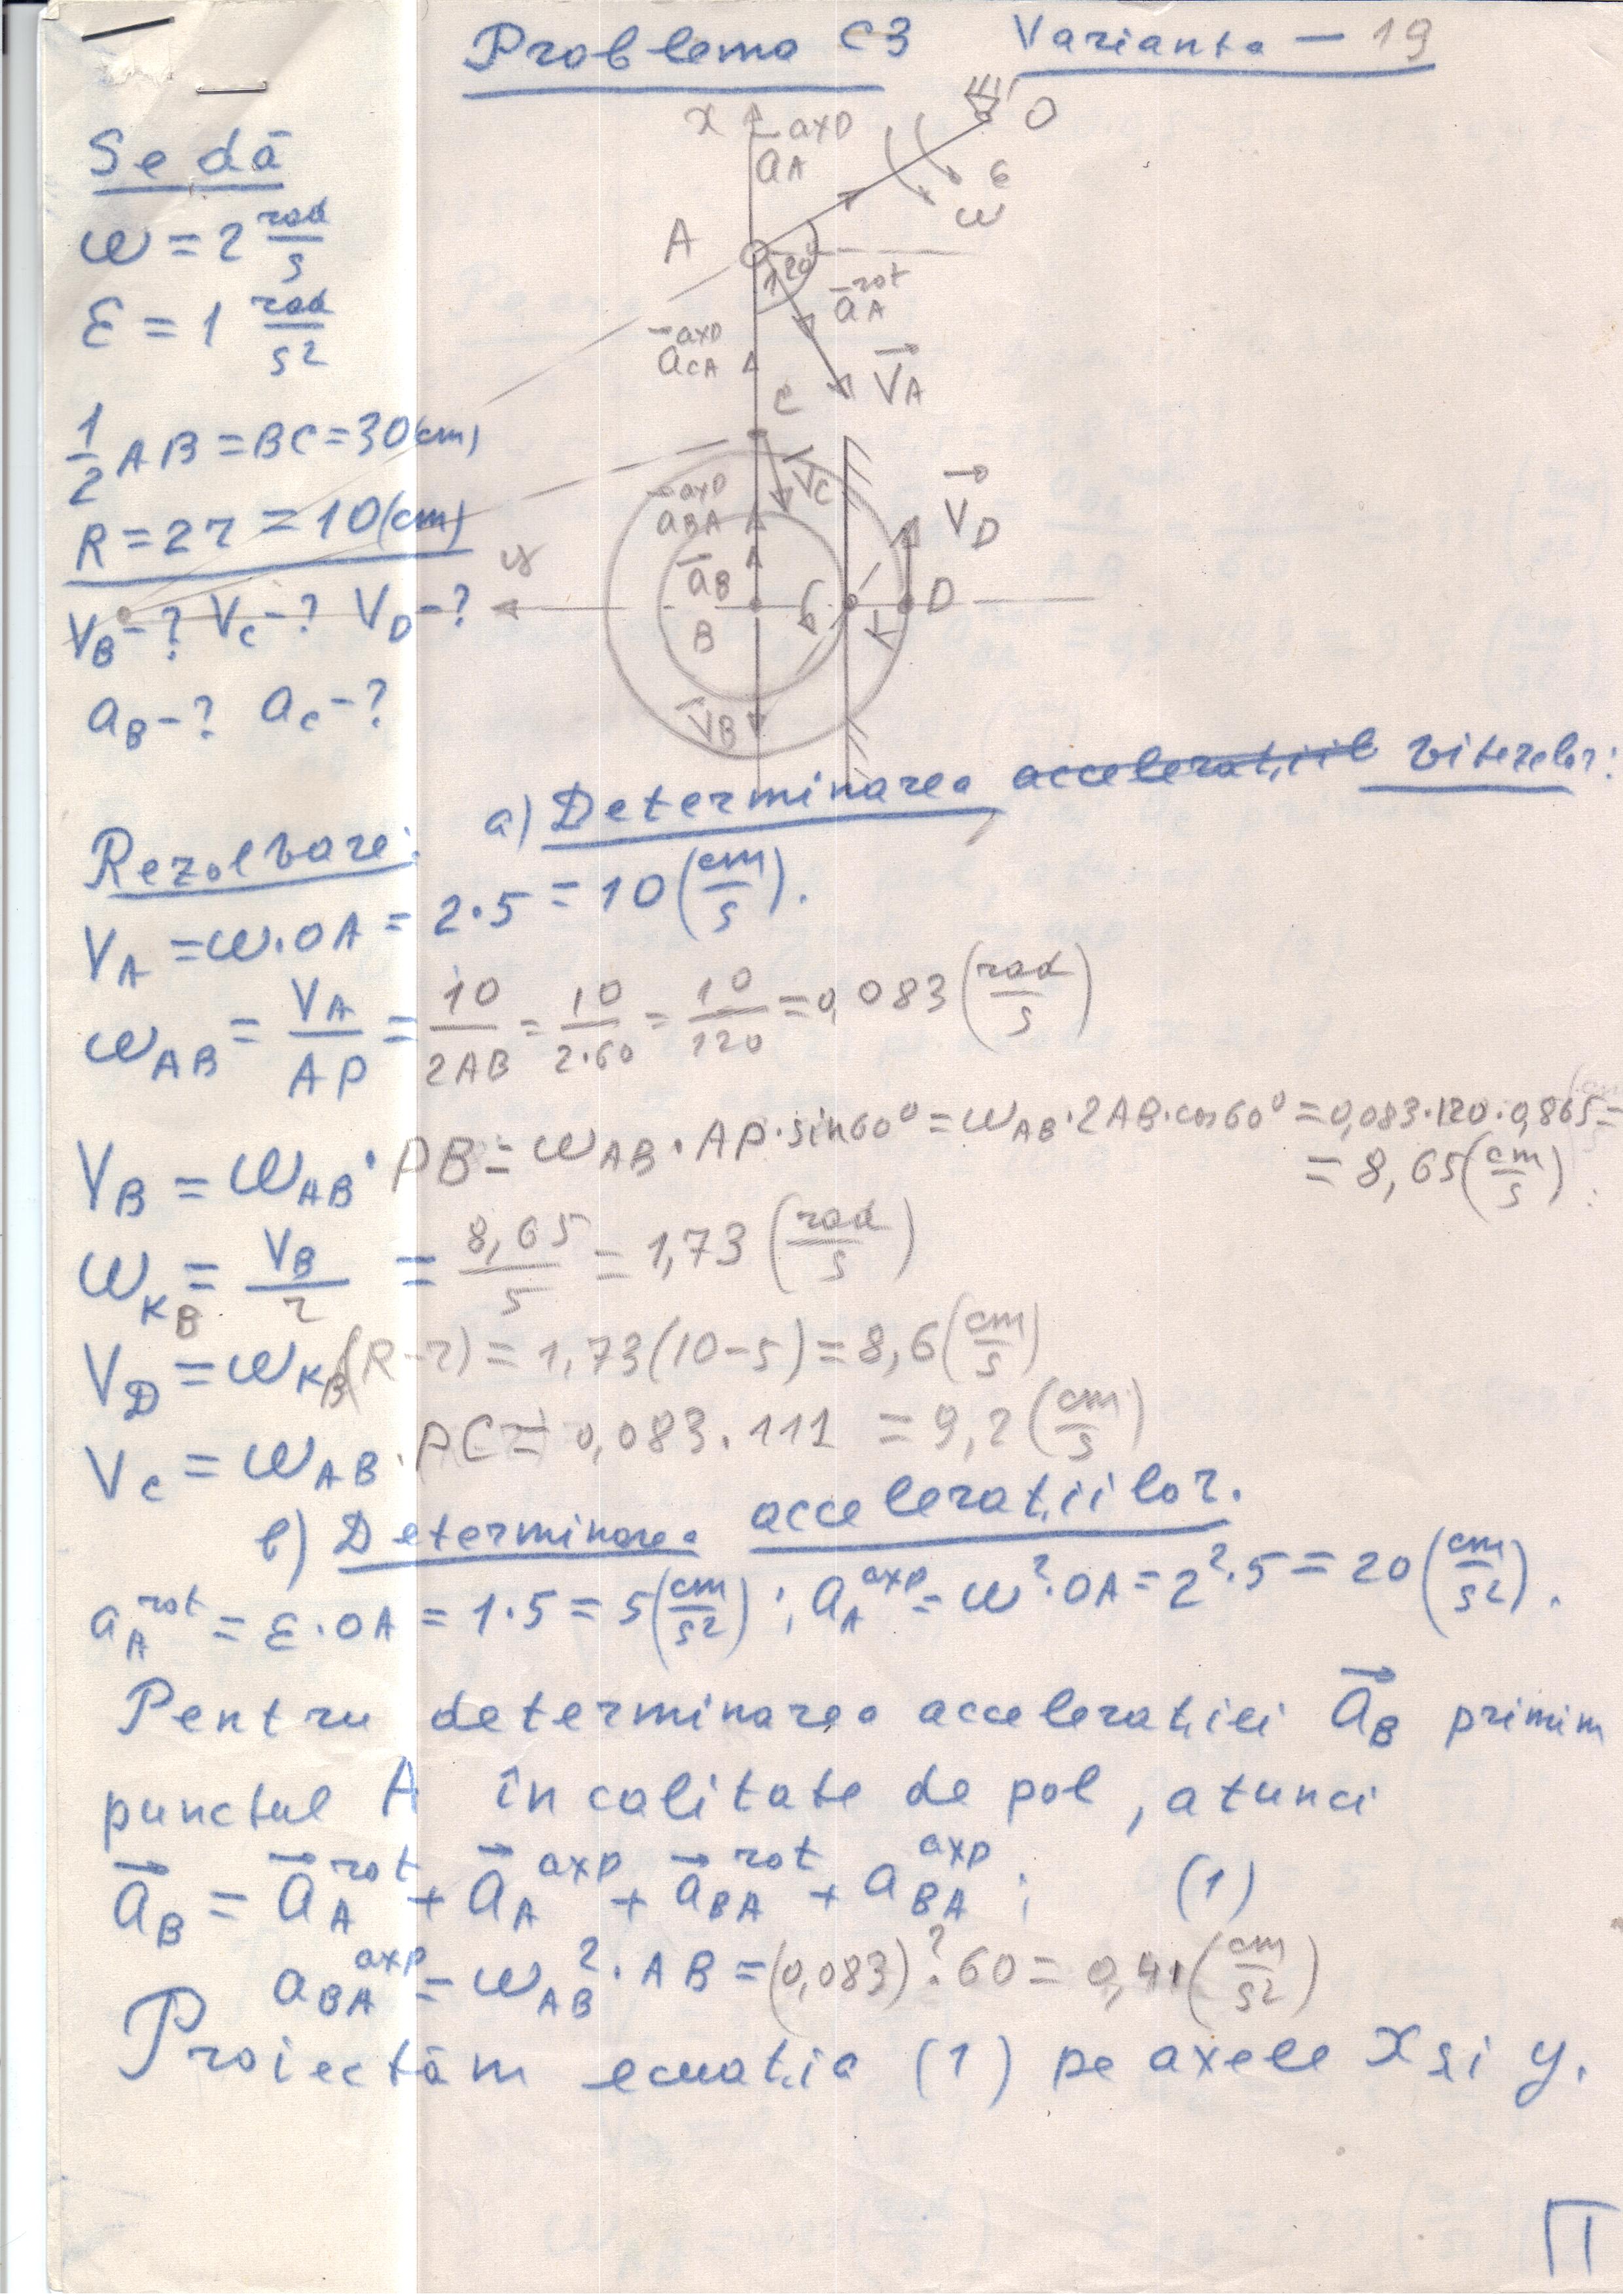 Problema C3 Varianta – 19
Se dă
ω = 2 rad/s
ε = 1 rad/s²
1/2 AB = BC = 30 (cm)
R = 2r = 10 (cm)
V_B – ? V_C – ? V_D – ?
a_B – ? a_C – ?
x
a_A^axp
O
ε
ω
A
120°
a_A^rot
V_A
a_CA^axp
C
V_C
a_BA^axp
V_D
y
a_B
B
D
K
V_B
a) Determinarea accelerațiil vitezelor:
Rezolvare:
V_A = ω·OA = 2·5 = 10 (cm/s).
ω_AB = V_A/AP = 10/2AB = 10/2·60 = 10/120 = 0,083 (rad/s)
V_B = ω_AB · PB = ω_AB · AP · sin60° = ω_AB · 2AB · cos60° = 0,083·120·0,865 =
= 8,65 (cm/s)
ω_KB = V_B/r = 8,65/5 = 1,73 (rad/s)
V_D = ω_KB (R – r) = 1,73 (10 – 5) = 8,6 (cm/s)
V_C = ω_AB · PC = 0,083 . 111 = 9,2 (cm/s)
b) Determinarea accelerațiilor.
a_A^rot = ε·OA = 1·5 = 5 (cm/s²) ; a_A^axp = ω²·OA = 2²·5 = 20 (cm/s²).
Pentru determinarea accelerației a_B primim
punctul A în calitate de pol, atunci
a_B = a_A^rot + a_A^axp + a_BA^rot + a_BA^axp ; (1)
a_BA^axp = ω_AB² · AB = (0,083)² · 60 = 0,41 (cm/s²)
Proiectăm ecuația (1) pe axele x și y.